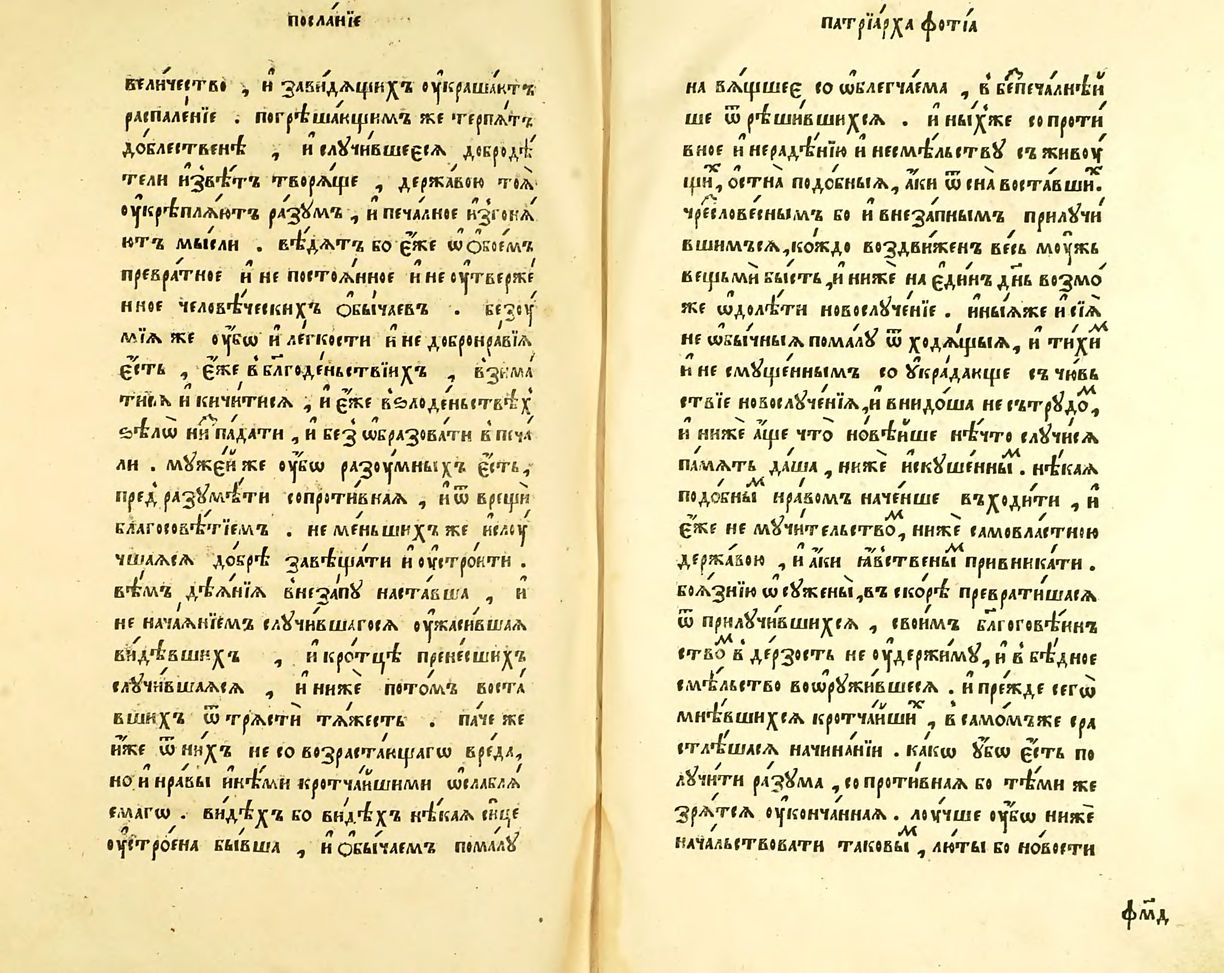 посла́нїе
вели́чество , и҆ зави́дѧщихъ оу҆краша́ютъ
распале́нїе . погрѣша́ющимъ же терпѧ́тъ
до́блественѣ , и҆ случи́вшеесѧ доброде́
тели и҆звѣ́тъ творѧ́ще , держа́вою тоѧ̀
оу҆крѣплѧ́ютъ ра́зумъ , и҆ печа́лное и҆згонѧ́
ютъ мы́сли . вѣ́дѧтъ бо є҆́же ѡ҆ ѻ҆бое́мъ
превра́тное и҆ не постоѧ́нное и҆ не оу҆тверже́
нное человѣ́ческихъ ѻ҆бы́чаевъ . безоу́
мїѧ же оу҆́бѡ и҆ ле́гкости и҆ не добронра́вїѧ
є҆́сть , є҆́же в бл҃годе́ньствїихъ , взима́
тисѧ и҆ кичи́тисѧ , и҆ є҆́же в ѕлоде́ньствѣхъ
ѕѣлѡ̀ ни́ць па́дати , и҆ без ѡ҆бразова́ти в печа́
ли . муже́й же оу҆́бѡ разоу́мныхъ є҆́сть,
пред̾ разумѣ́ти сопроти́внаѧ , и҆ ѿ врещѝ
благосовѣ́тїемъ . не ме́ньшихъ же и҆ слоу
чшаѧсѧ до́брѣ завѣща́ти и҆ оу҆стро́ити .
вѣ́мъ дѣѧ́нїѧ внеза́пу наста́вша , и҆
не ча́ѧнїемъ случи́вшагосѧ оу҆жаси́вшаѧ
ви́дѣвшихъ , и҆ кро́тцѣ прене́сшихъ
случи́вшаѧсѧ , и҆ нижѐ пото́мъ воста́
вшихъ ѿ трѧ́сти тѧ́жесть . па́че же
и҆́же ѿ ни́хъ не со возраста́ющагѡ вреда̀,
но и҆ нра́вы и҆нѣ́ми кротча́йшими ѡ҆слаблѧ́
емагѡ . ви́дѣхъ бо ви́дѣхъ нѣ́каѧ си́це
оу҆стро́ена бы́вша , и҆ ѻ҆бы́чаемъ пома́лу
патрїа́рха фо́тїа
на вѧ́щшее со ѡ҆блегча́ема , в беспеча́лнѣй
ше ѿ рѣши́вшихсѧ . и҆ ны́хже сопроти́
вное и҆ нераде́нїю и҆ несмѣ́льству съживоу́
щих, ѻ҆стна̀ подо́бныѧ, а҆́ки ѿ сна̀ воста́вших.
чресслове́снымъ бо и҆ внеза́пнымъ прилучи́
вшимъсѧ, ко́ждо воздви́женъ ве́сь моу́жь
вещьмѝ бы́сть , и҆ нижѐ на є҆ди́нъ дн҃ь возмо́
же ѡ҆долѣ́ти новослуче́нїе . и҆ны́ѧже и҆ сїѧ̀
не ѡ҆бы́чныѧ пома́лу ѿ ходѧ́щыѧ, и҆ ти́хим
и҆ не смуще́ннымъ со у҆кра́дающе съ чю́вь
ствїе новослуче́нїѧ, и҆ внидо́ша не сътрудо́м,
и҆ нижѐ а҆́ще что̀ новѣ́йше нѣ́что случи́сѧ
па́мѧть да́ша , нижѐ и҆скуше́нным . нѣ́каѧ
подо́бным нра́вомъ наче́нше въходи́ти , и҆
є҆́же не мучи́тельством, нижѐ самовла́стною
держа́вою , и҆ а҆́ки ꙗ҆́вственым привника́ти .
боѧ́знїю ѡ҆сужены̀, въ ско́рѣ преврати́шасѧ
ѿ прилучи́вшихсѧ , свои́мъ бл҃гоговѣ́инъ
ством в де́рзость не оу҆держи́му, и҆ в бѣ́дное
смѣ́льство воѡ҆ружи́вшеесѧ . и҆ пре́жде сегѡ̀
мнѣ́вшихсѧ кротча́йших , в само́мъже сра
стлѣ́шасѧ начина́нїи . ка́кѡ у҆́бѡ є҆́сть по
лучи́ти ра́зума , сопроти́внаѧ бо тѣ́ми же
зрѧ́тсѧ оу҆конча́ннаѧ . лоу́чше оу҆́бѡ нижѐ
нача́льствовати таковы́м , лю́ты бо но́вости
фм҃д